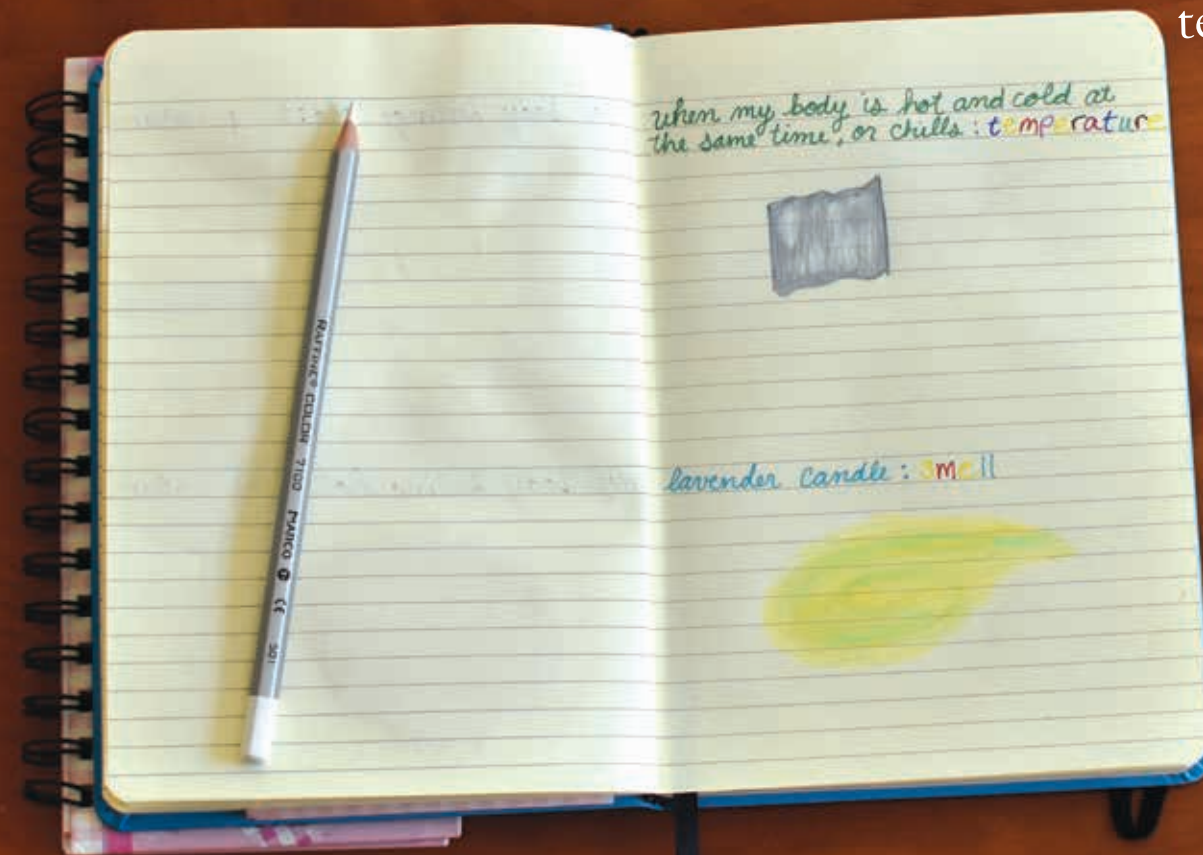 te
when my body is hot and cold at
the same time, or chills : temperature
lavender candle : smell
RAFFINÉ COLOR 7100 MARCO CE 501